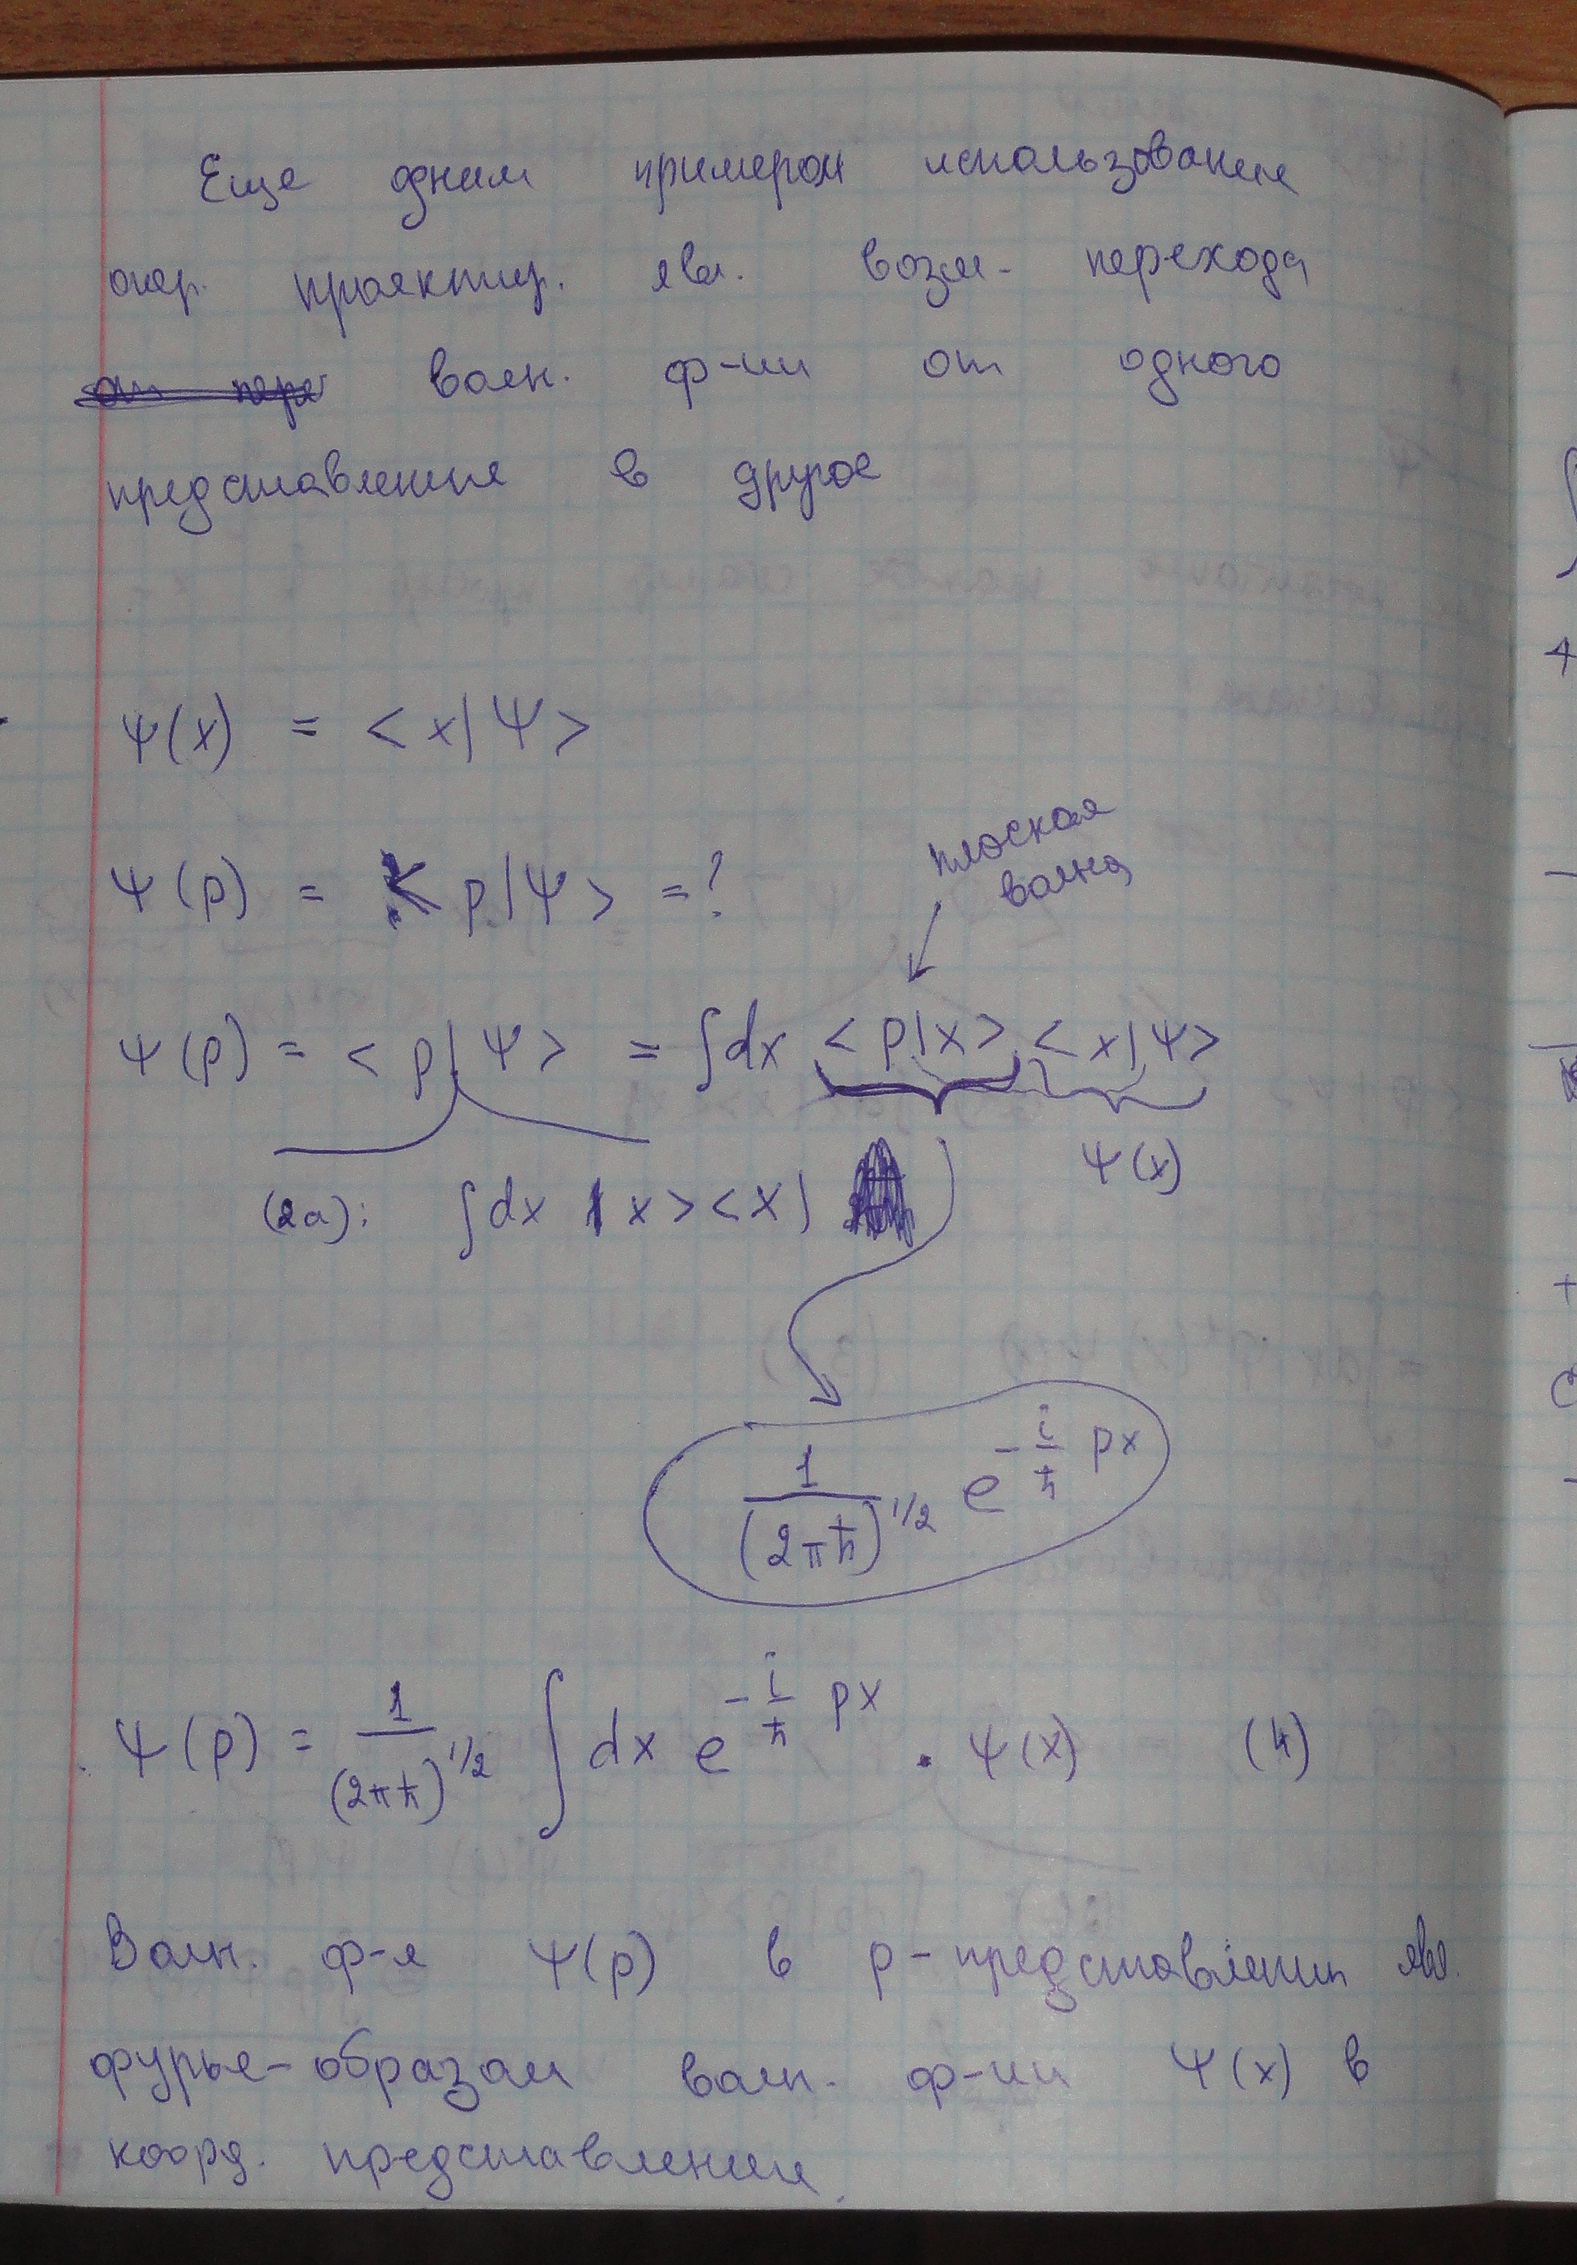 Еще одним примером использования
опер. проектир. явл. возм. перехода
волн. ф-ии от одного
представления в другое
Ψ(x) = <x|Ψ>
плоская
волна
Ψ(p) = <p|Ψ> = ?
Ψ(p) = <p|Ψ> = ∫dx <p|x> <x|Ψ>
Ψ(x)
(2a): ∫dx |x><x|
1/(2πħ)^1/2 e^(-i/ħ px)
Ψ(p) = 1/(2πħ)^1/2 ∫ dx e^(-i/ħ px) · Ψ(x) (4)
Волн. ф-я Ψ(p) в p-представлении явл.
фурье-образом волн. ф-ии Ψ(x) в
коорд. представлении.